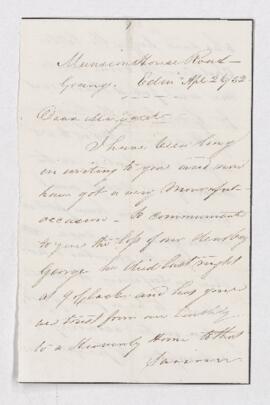 Mansion House Road
Grange. Edinr Apl 2 1852
Dear Margaret
I have been long
in writing to you and now
have got a very Mournful
occasion to communicate
to you the loss of our dear boy
George he died last night
at 9 oclock and has gone
we trust from an Earthly
to a Heavenly Home to that